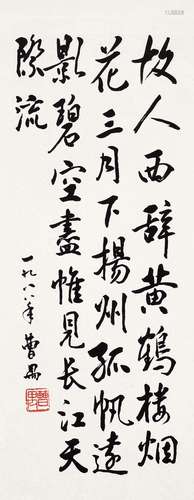 故人西辞黄鶴楼烟
花三月下揚州孤帆遠
影碧空盡惟見长江天
際流
一九八八年 曹禺